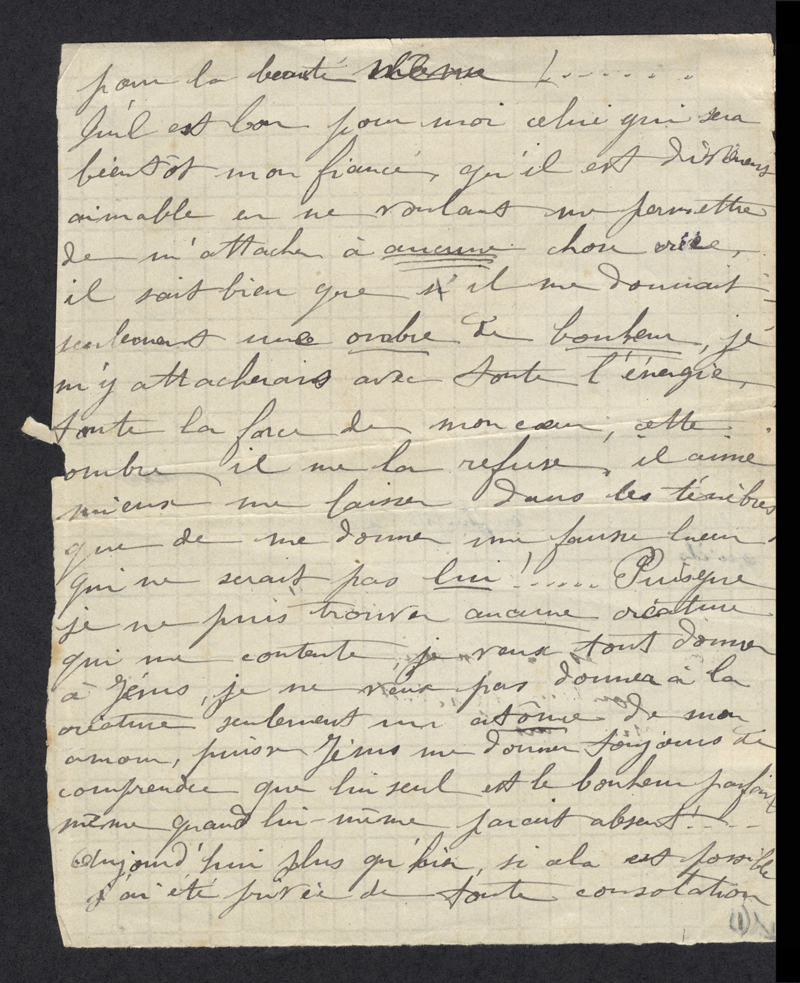 pour la beauté même !.......
Qu'il est bon pour moi celui qui sera
bientôt mon fiancé, qu'il est divinement
aimable en ne voulant me permettre
de m'attacher à aucune chose créée,
il sait bien que s'il me donnait
seulement une ombre de bonheur, je
m'y attacherais avec toute l'énergie,
toute la force de mon cœur, cette
ombre il me la refuse, il aime
mieux me laisser dans les ténèbres
que de me donner une fausse lueur
qui ne serait pas lui !..... Puisque
je ne puis trouver aucune créature
qui me contente, je veux tout donner
à Jésus, je ne veux pas donner à la
créature seulement un atôme de mon
amour, puisse Jésus me donner toujours de
comprendre que lui seul est le bonheur parfait
même quand lui-même paraît absent !....
Aujourd'hui plus qu'hier, si cela est possible
j'ai été privée de toute consolation